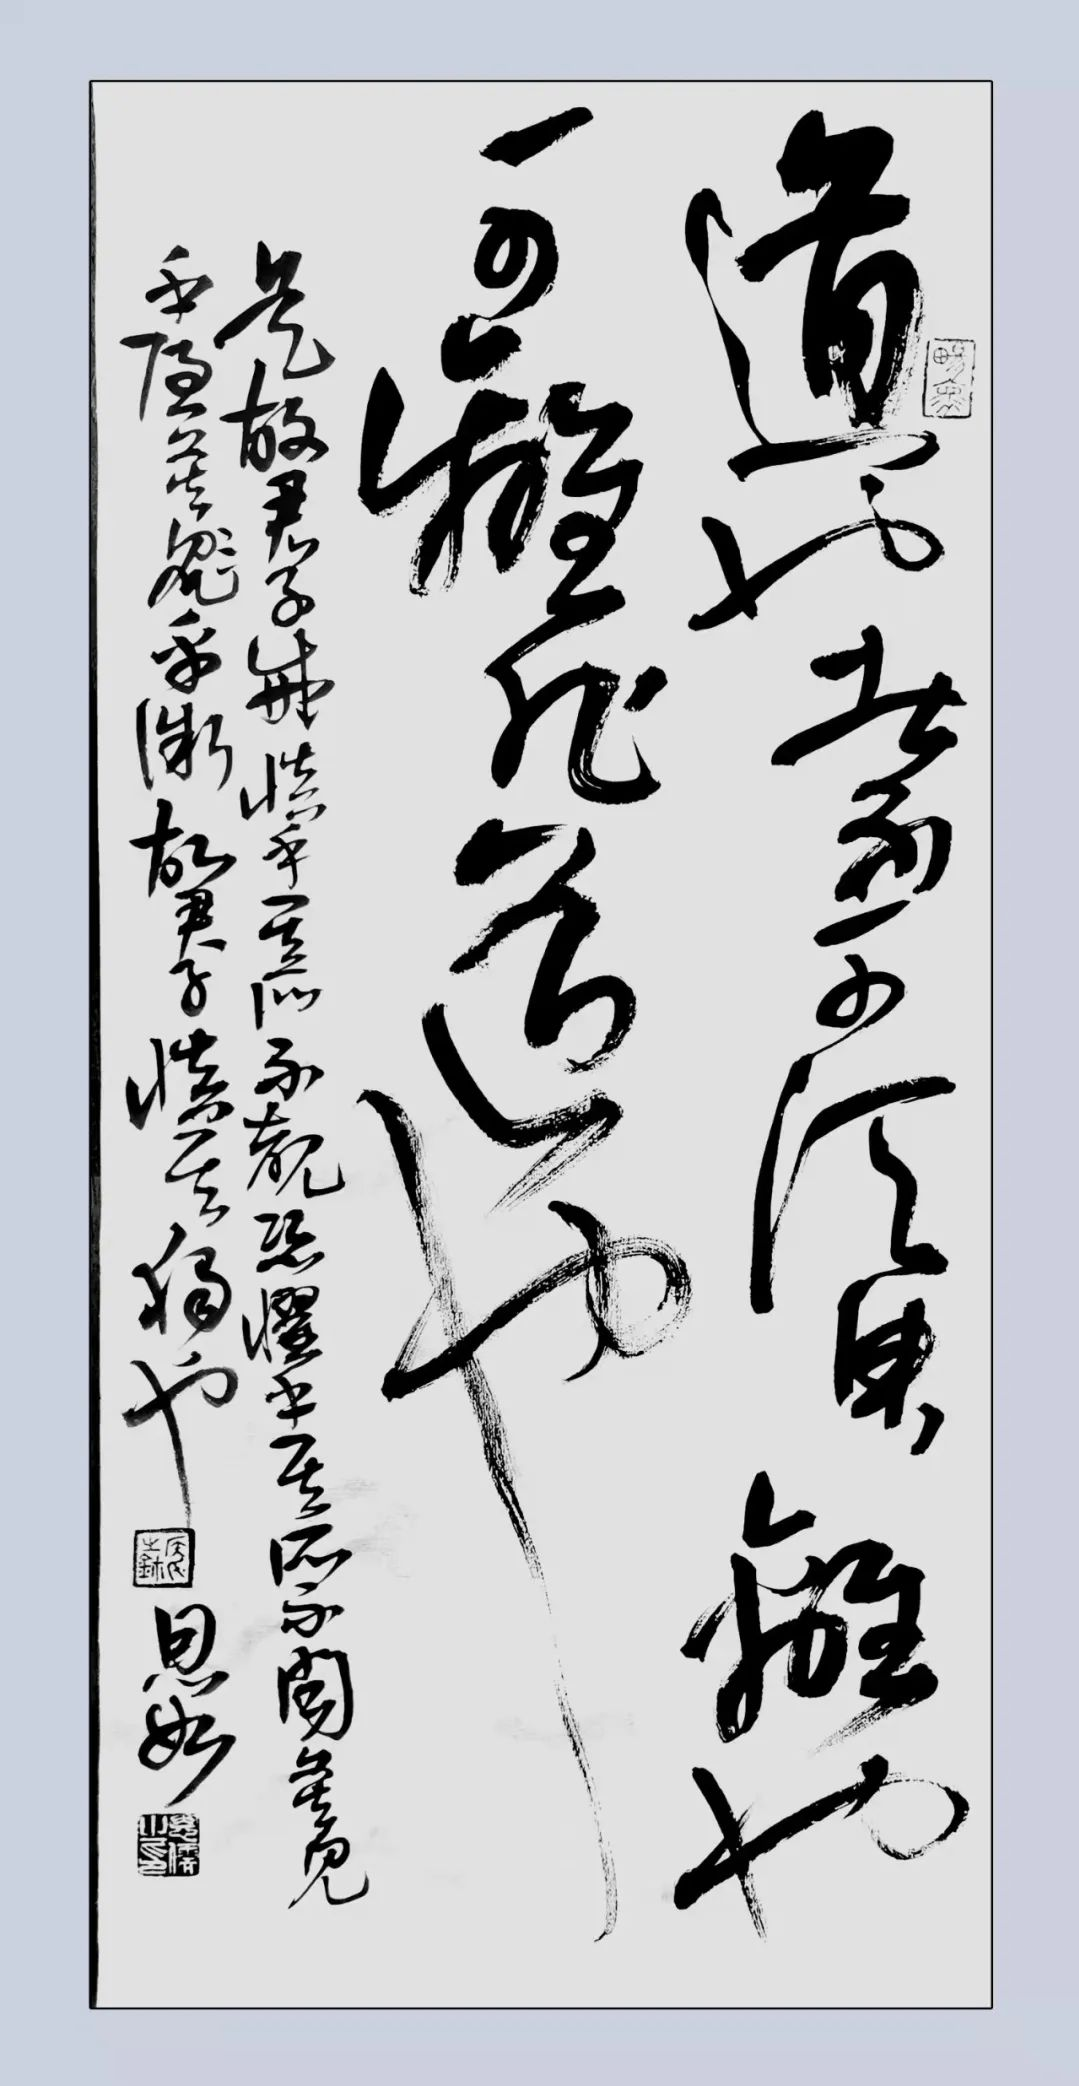 道也者不可須臾離也
可離非道也
是故君子戒慎乎其所不覩恐懼乎其所不聞莫見
乎隱莫顯乎微故君子慎其獨也